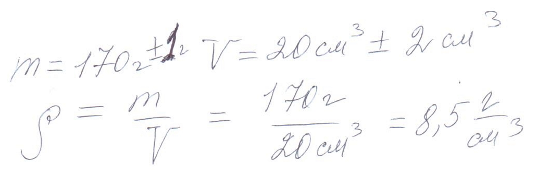 m = 170г ± 1г V = 20 см³ ± 2 см³
ρ = m/V = 170г/20 см³ = 8,5 г/см³